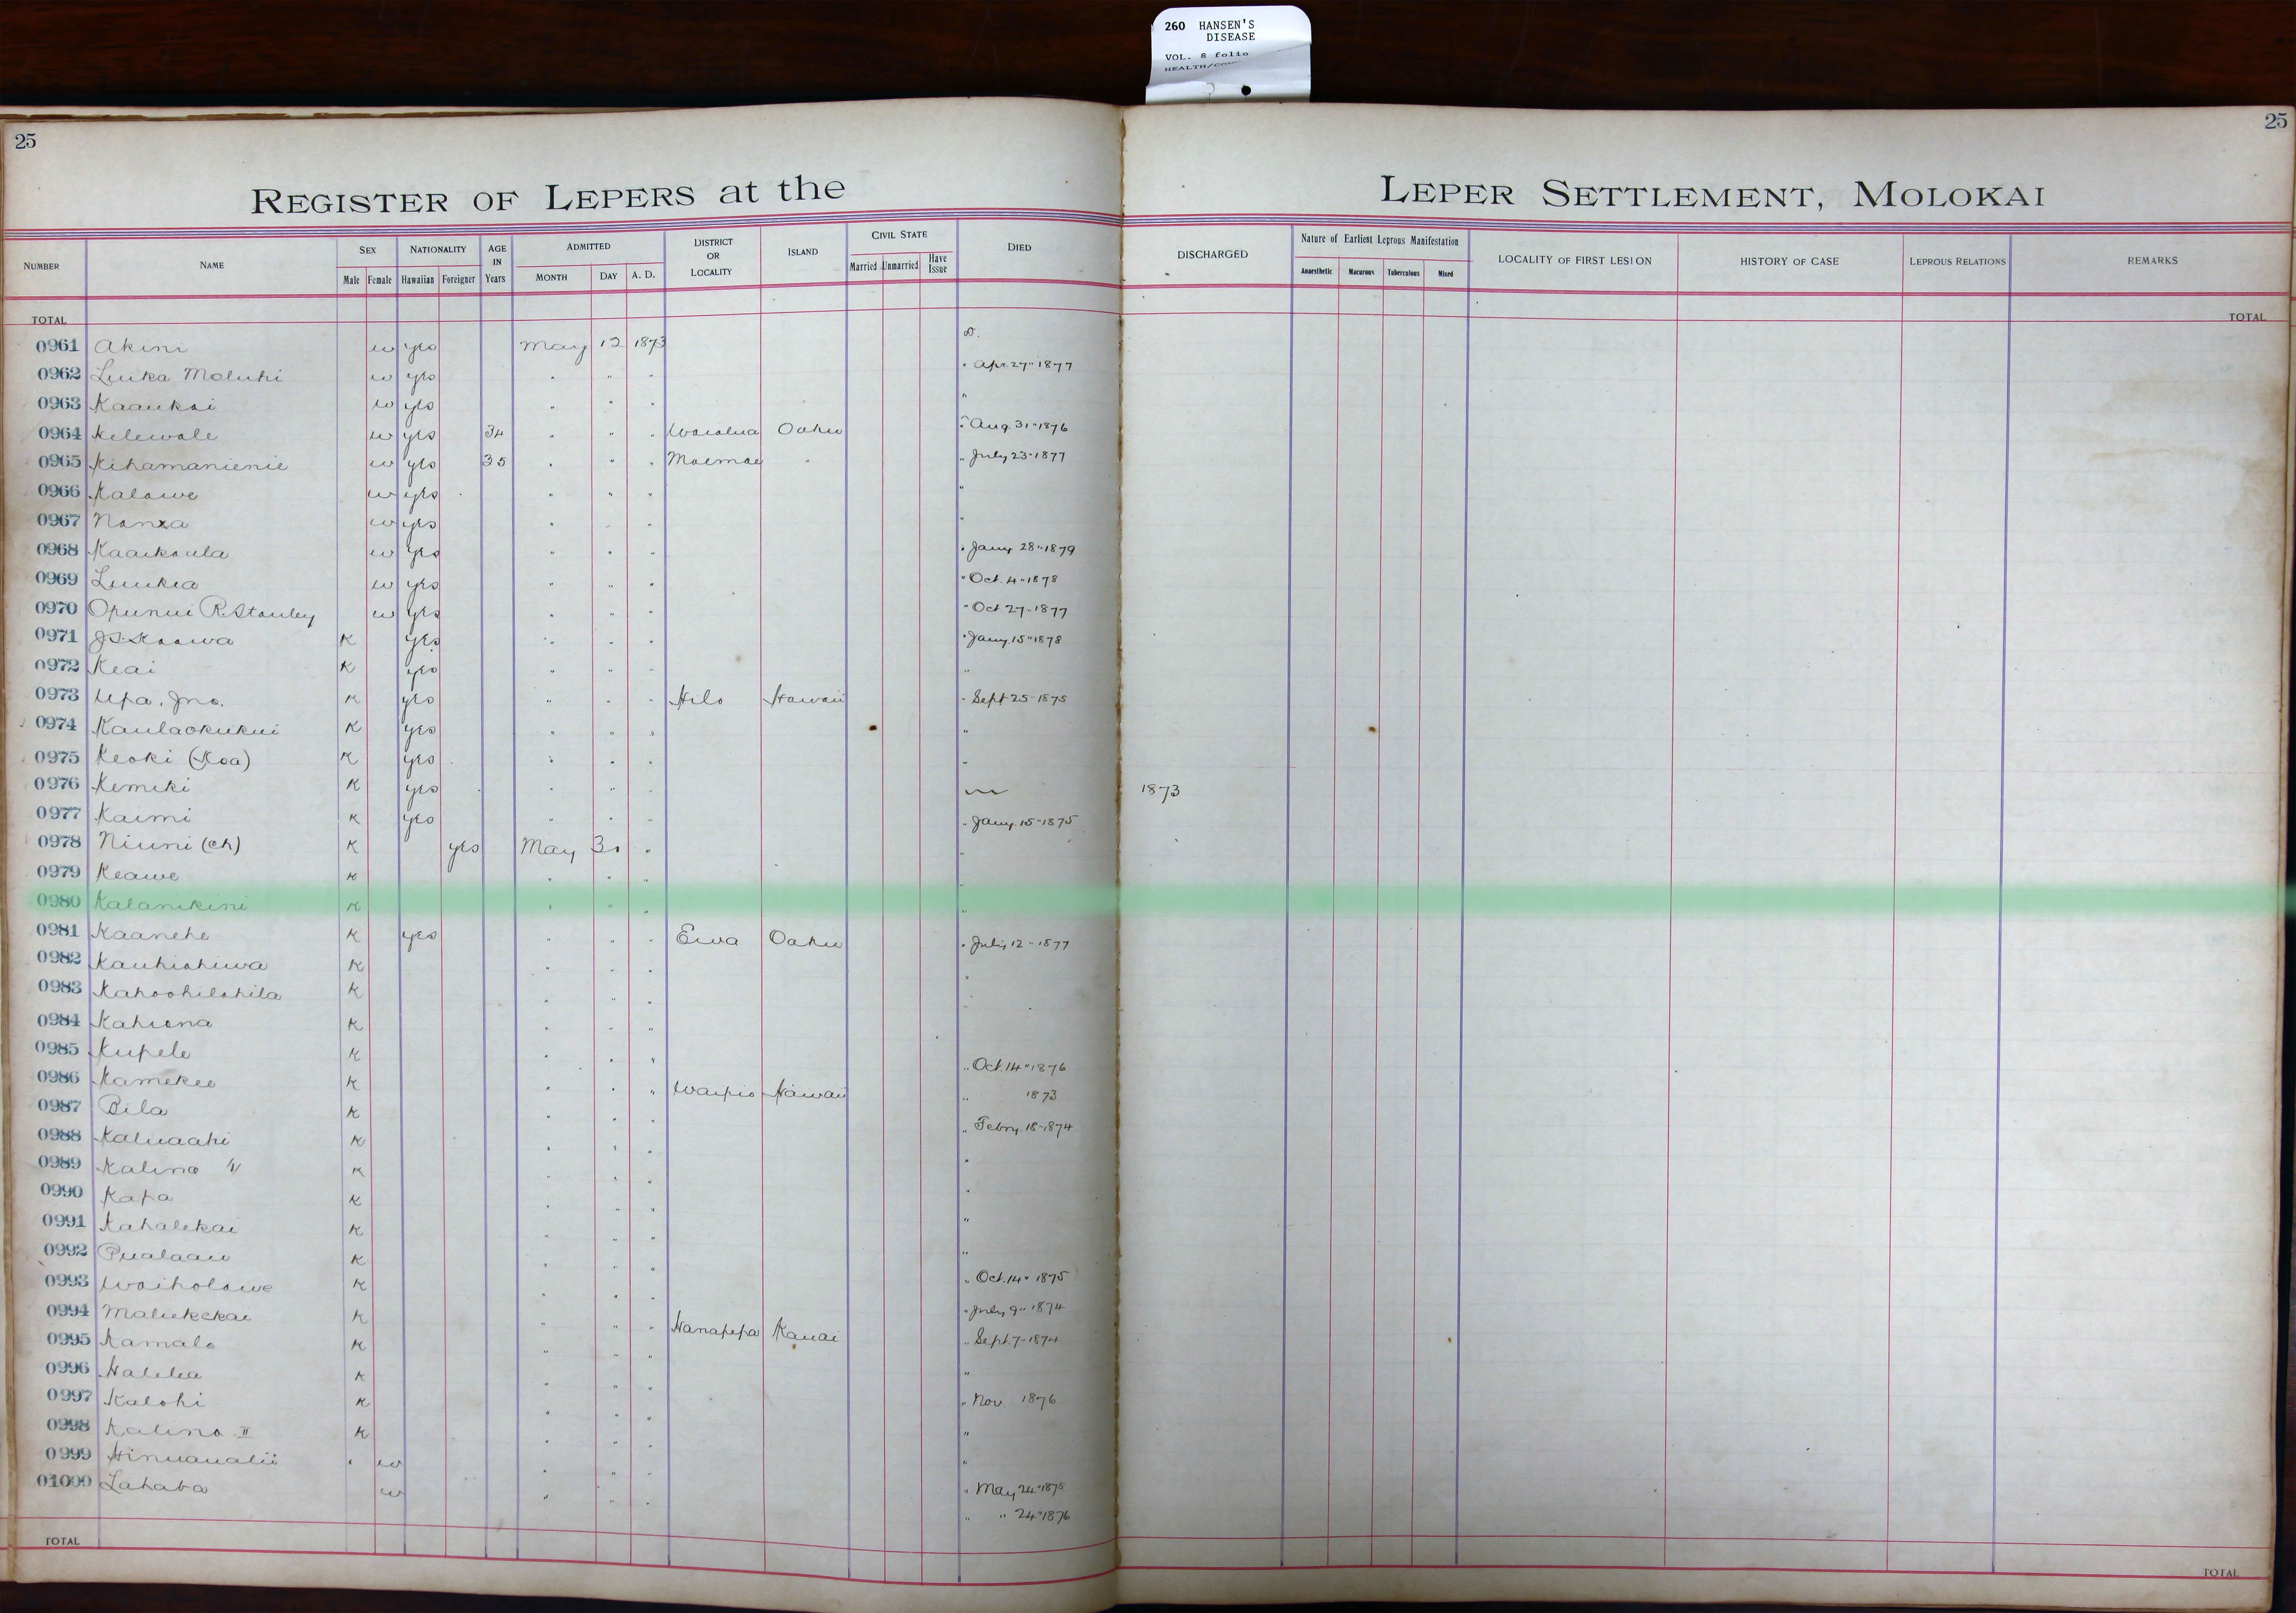 260 HANSEN'S
DISEASE
VOL. 8 folio
25
25
REGISTER OF LEPERS at the LEPER SETTLEMENT, MOLOKAI
NUMBER NAME SEX Male Female NATIONALITY Hawaiian Foreigner AGE IN Years ADMITTED MONTH DAY A. D. DISTRICT OR LOCALITY ISLAND CIVIL STATE Married Unmarried Have Issue DIED DISCHARGED Nature of Earliest Leprous Manifestation Anaesthetic Macurous Tuberculous Mixed LOCALITY OF FIRST LESION HISTORY OF CASE LEPROUS RELATIONS REMARKS
TOTAL TOTAL
0961 Akini w yes May 12 1873 D.
0962 Luika Moluhi w yes " " " " Apr. 27" 1877
0963 Kaaukai w yes " " " "
0964 Kelewale w yes 34 " " " Waialua Oahu " Aug. 31" 1876
0965 Kihamanienie w yes 35 " " " Moemoe " " July 23" 1877
0966 Kalawe w yes " " " "
0967 w yes " " " "
0968 Kaaikaula w yes " " " " Jany. 28" 1879
0969 Luukia w yes " " " " Oct. 4" 1878
0970 Opunui R. Stanley w yes " " " " Oct 27" 1877
0971 K yes " " " " Jany. 15" 1878
0972 Keai K yes " " " "
0973 Upa. Jno. K yes " " " Hilo Hawaii " Sept 25" 1875
0974 Kaulaokukui K yes " " " "
0975 Keoki (Koa) K yes " " " "
0976 Kemiki K yes " " " 1873
0977 Kaimi K yes " " " " Jany. 15" 1875
0978 Niuni (ch) K yes May 30 " "
0979 Keawe K " " " "
0980 Kalanikini K " " " "
0981 Kaanehe K yes " " " Ewa Oahu " July 12" 1877
0982 Kauhiohiwa K " " " "
0983 Kahoohilohila K " " " "
0984 Kahiona K " " "
0985 Kupele K " " " " Oct. 14" 1876
0986 Kamekeo K " " " Waipio Hawaii " 1873
0987 Pila K " " " " Febry. 18" 1874
0988 Kaluaahi K " " " "
0989 Kalino K " " " "
0990 Kapa K " " " "
0991 Kahalekai K " " " "
0992 Pualaau K " " " " Oct. 14" 1875
0993 Waiholowe K " " " " July 9" 1874
0994 Maliekekai K " " " Hanapepa Kauai " Sept. 7" 1874
0995 Kamalo K " " " "
0996 Halelea K " " " " Nov. 1876
0997 Kalohi K " " " "
0998 Kalino II K " " " "
0999 Hinuaualii w " " " " May 24" 1875
01000 Lahaba w " " " " " 24" 1876
TOTAL TOTAL